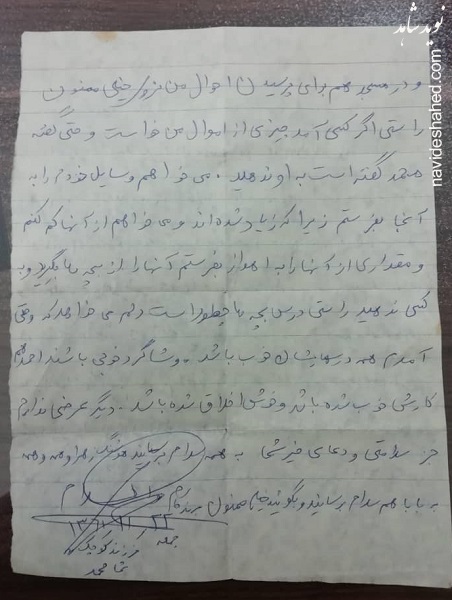 نوید شاهد
navideshahed.com
و در مسجد هم برای پرسیدن احوال من نزد خیلی ممنون
راستی اگر کسی آمد چیزی از اموال من خواست و حتی گفته
محمد گفته است به او ندهید. می خواهم وسایل خودم را به
آنجا بفرستم زیرا که زیاد شده اند و می خواهم از آنها کم کنم
و مقداری از آنها را به اهواز بفرستم آنها را از بچه ها بگیرید و به
کسی ندهید راستی درس بچه ها چطور است دلم می خواهد که وقتی
آمدم همه درسهایشان خوب باشد و شاگرد خوبی باشند احمد هم
کارش خوب شده باشد و خوش اخلاق شده باشد. دیگر عرضی ندارم
جز سلامتی و دعای خیر شما به همه سلام برسانید زهرا و همه و همه
به بابا هم سلام برسانید و بگوئید خیلی ممنون والسلام
جمعه
فرزند کوچک
شما محمد